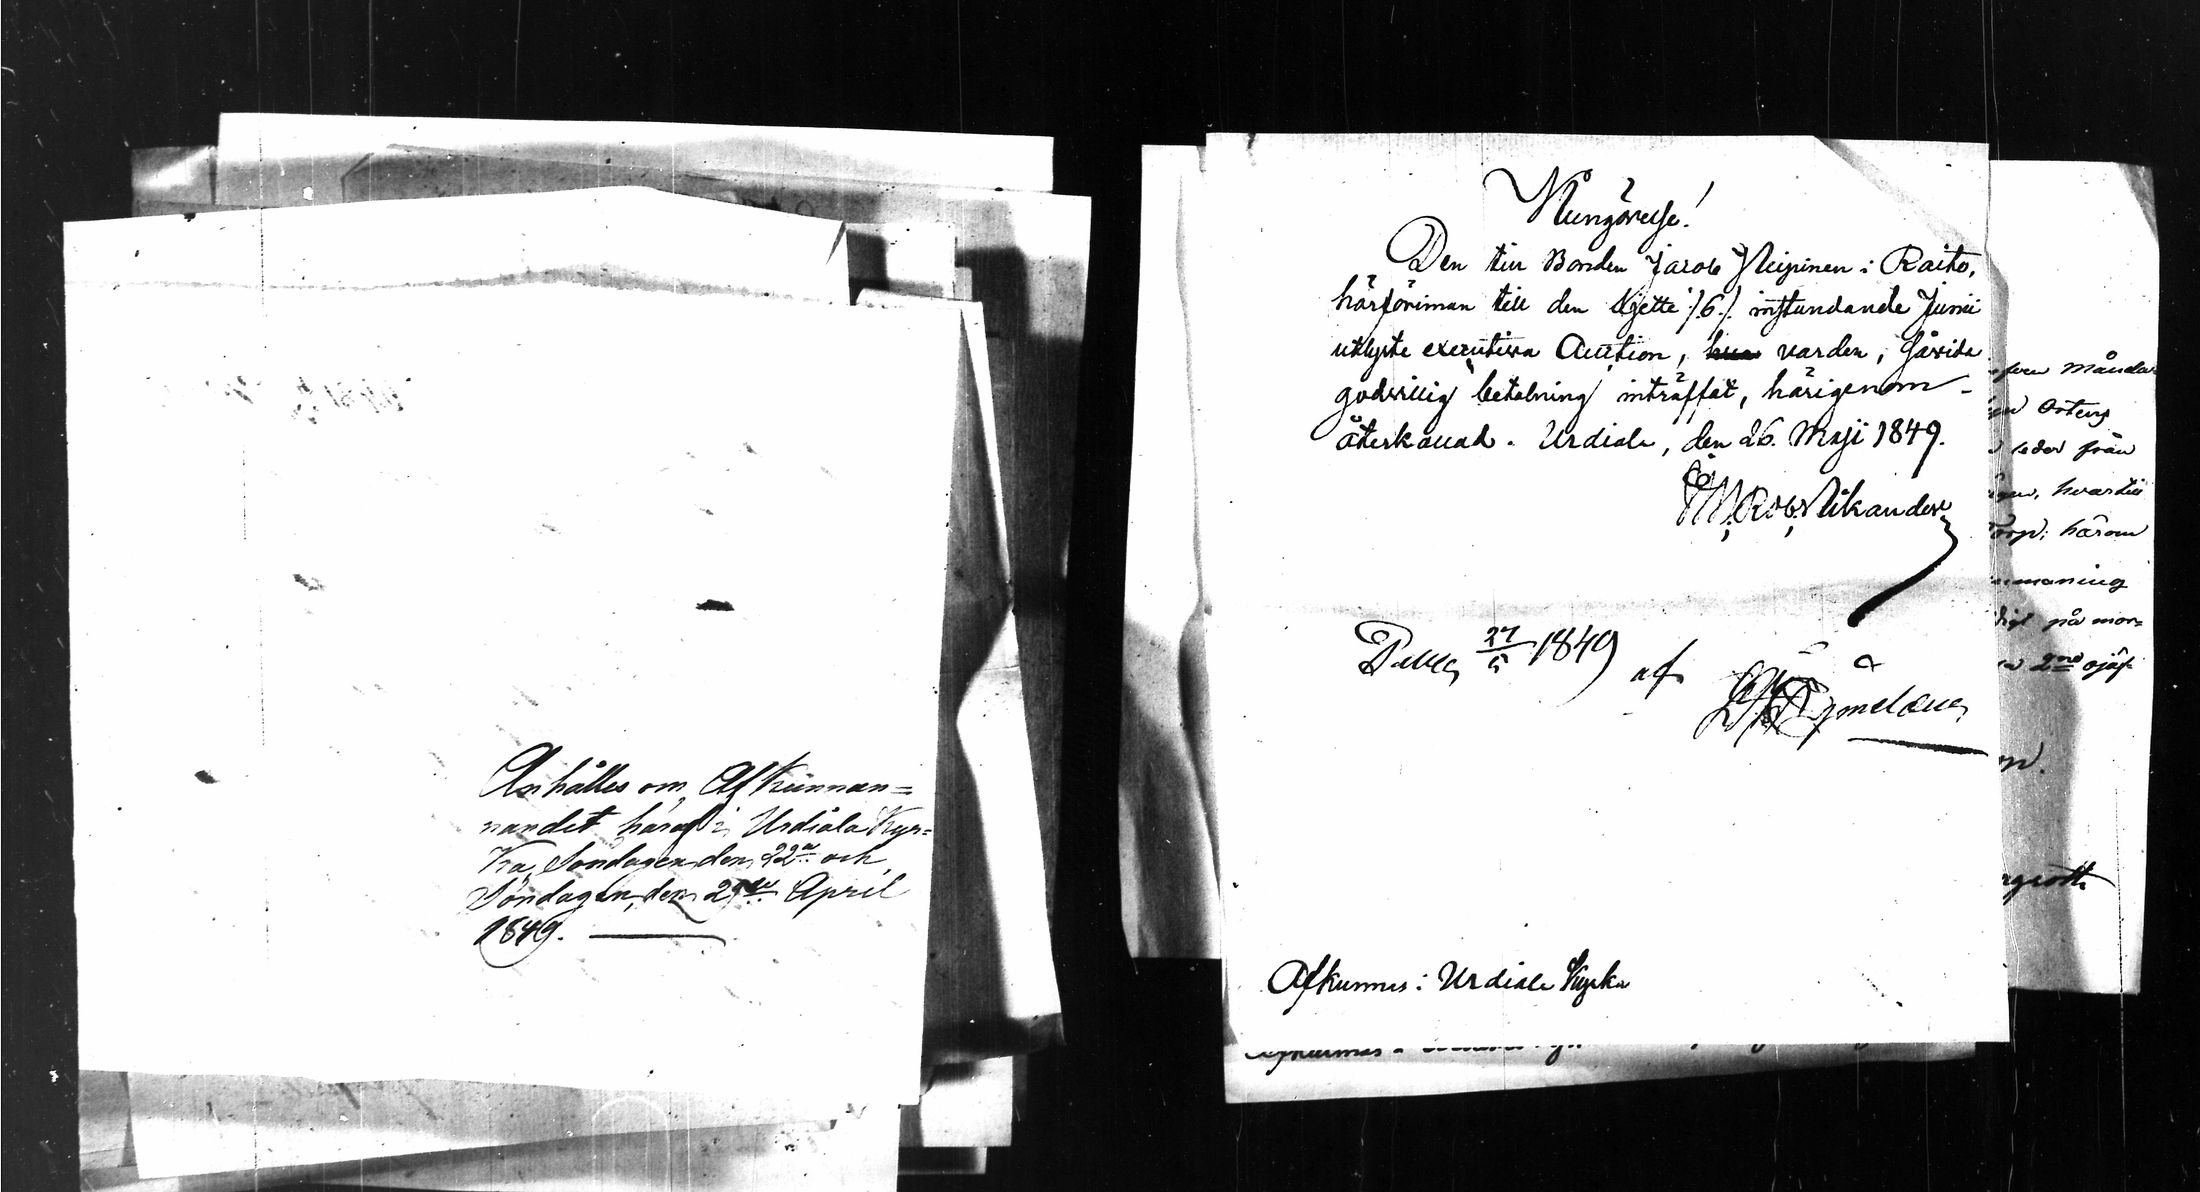 Anhålles om Afkunnan=
nandet häraf i Urdiala Kyr=
ka, Söndagen den 22a och
Söndagen, den 29de April
1849.
Kungörelse!
Den till Bonden Jacob Neipinen i Raito,
härförinnan till den Sjette /:6:/ instundande Junii
utlyste executiva Auction, varder, såvida
godvillig betalning inträffat, härigenom
återkallad. Urdiala, den 26. Maji 1849.
Rob. Nikander
27/5 1849 af
Afkunnes i Urdiala Kyrka
Måndа
Ortens
leder från
hvartill
härom
på mor=
2ne